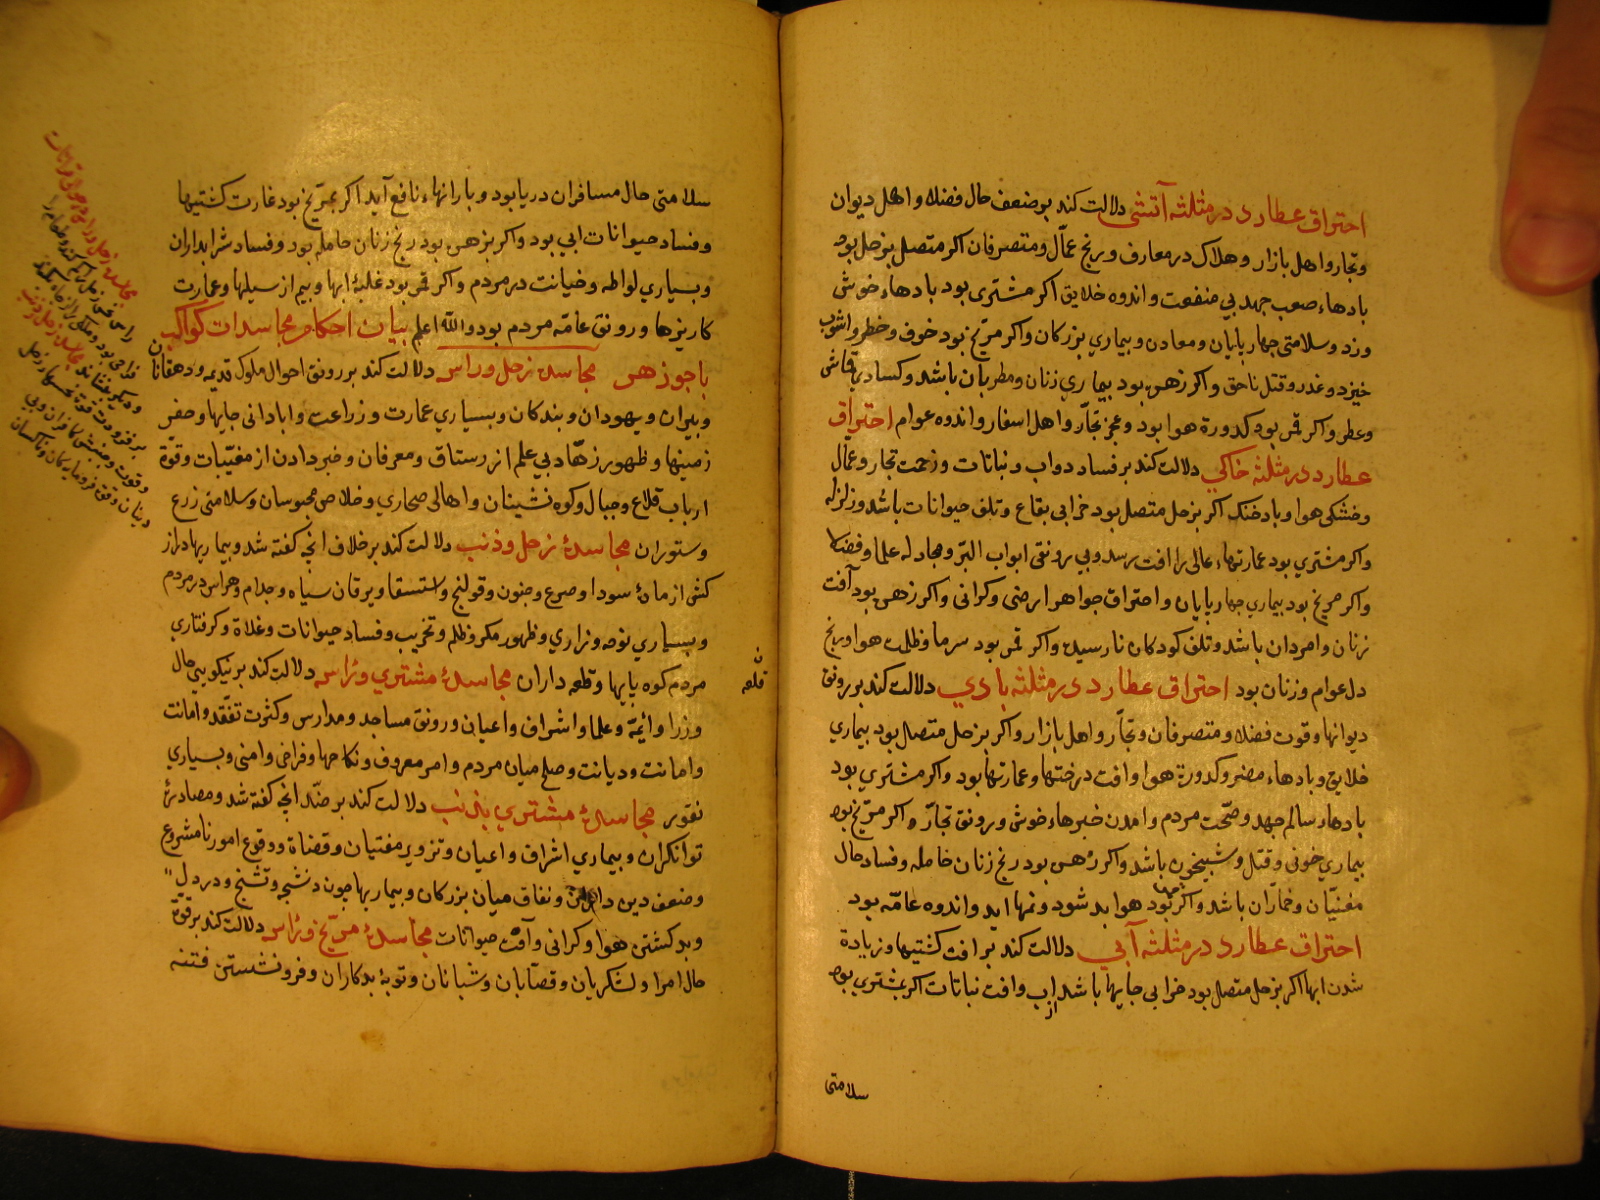 احتراق عطارد در مثلثه آتشی دلالت کند بر ضعف حال فضلا و اهل دیوان
و تجار و اهل بازار و هلاک در معارف و رنج عمّال و متصرفان اکر متصل بزحل بود
بادهاء صعب جهد بی منفعت و اندوه خلایق اکر مشتری بود بادهاء خوش
وزد و سلامتی جهارپایان و معادن و بیماری بزرکان و اکر مرّیخ بود خوف و خطر و آشوب
خیزد و غدر و قتل ناحق و اکر زهره بود بیماری زنان و مطربان باشد و کسادی قماش
و عطر و اکر قمر بود کدورة هوا بود و عجز تجّار و اهل اسفار و اندوه عوام احتراق
عطارد در مثلثه خاکی دلالت کند بر فساد دواب و نباتات و زحمت تجار و عمّال
و خشکی هوا و باد خنک اکر بزحل متصل بود خرابی بقاع و تلف حیوانات باشد و زلزله
و اکر مشتری بود عمارتهاء عالی را افت رسد و بی رونقی ابواب البرّ و مجادله علما و فضلا
و اکر مریخ بود بیماری جهارپایان و احتراق جواهر ارضی و کرانی و اکر زهره بود آفت
زنان و امردان باشد و تلف کودکان نارسیده و اکر قمر بود سرما و ظلمت هوا و رنج
دل عوام و زنان بود احتراق عطارد در مثلثه بادی دلالت کند بر رونق
دیوانها و قوت فضلا و متصرفان و تجّار و اهل بازار و اکر بزحل متصل بود بیماری
خلایق و بادهاء مضر و کدورة هوا و افت درختها و عمارتها بود و اکر مشتری بود
بادهاء سالم جهد و صحّت مردم و امدن خبرهاء خوش و رونق تجّار و اکر مرّیخ بود
بیماری خونی و قتل و شبیخون باشد و اکر زهره بود رنج زنان حامله و فساد حال
مغنیّان و خمّاران باشد و اکر قمر بود هوا بد شود و نمها اید و اندوه عامّه بود
احتراق عطارد در مثلثه آبی دلالت کند بر افت کشتیها و زیادة
شدن ابها اکر بزحل متصل بود خرابی جایها باشد از اب و افت نباتات اکر بمشتری بود
سلامتی
سلامتی حال مسافران دریا بود و بارانهاء نافع آید اکر بمرّیخ بود غارت کشتیها
و فساد حیوانات ابی بود و اکر بزهره بود رنج زنان حامله بود و فساد شرابداران
و بسیاری لواطه و خیانت در مردم و اکر قمر بود غلبۀ ابها و بیم از سیلها و عمارت
کاریزها و رونق عامّه مردم بود والله اعلم بیان احکام مجاسدات کواکب
با جوزهر مجاسده زحل و راس دلالت کند بر رونق احوال ملوک قدیمه و دهقانان
و پیران و یهودان و بندکان و بسیاری عمارت و زراعت و ابادانی جایها و حفر
زمینها و ظهور زهّاد بی علم از رستاق و معرفان و خبر دادن از مغیّبات و قوّة
ارباب قلاع و جبال و کوه نشینان و اهالی صحاری و خلاص محبوسان و سلامتی زرع
و ستوران مجاسدۀ زحل و ذنب دلالت کند بر خلاف انچه کفته شد و بیماریها دراز
کش از مادۀ سودا و صرع و جنون و قولنج و استسقا و یرقان سیاه و جذام و هراس در مردم
و بسیاری نوحه و زاری و ظهور مکر و ظلم و تخریب و فساد حیوانات و غلاة و کرفتاری
مردم کوه پایها و قطعه داران مجاسدۀ مشتری و راس دلالت کند بر نیکویی حال
ن قلعه
وزرا و ائیمّه و علما و اشراف و اعیان و رونق مساجد و مدارس و کثرت تفقد و امانت
و امانت و دیانت و صلح میان مردم و امر معروف و نکاحها و فراخی و امنی و بسیاری
نقود مجاسدۀ مشتری بذنب دلالت کند بر ضدّ انچه کفته شد و مصادرۀ
توانکران و بیماری اشراف و اعیان و تزویر مفتیان و قضاة و وقوع امور نامشروع
و ضعف دین و نفاق میان بزرکان و بیماریها چون و تشنج و درد دل
و بد کشتن هوا و کرانی و آفت حیوانات مجاسدۀ مرّیخ و راس دلالت کند بر قوّة
حال امرا و لشکریان و قصّابان و شبانان و توبۀ بدکاران و فرو نشستن فتنه